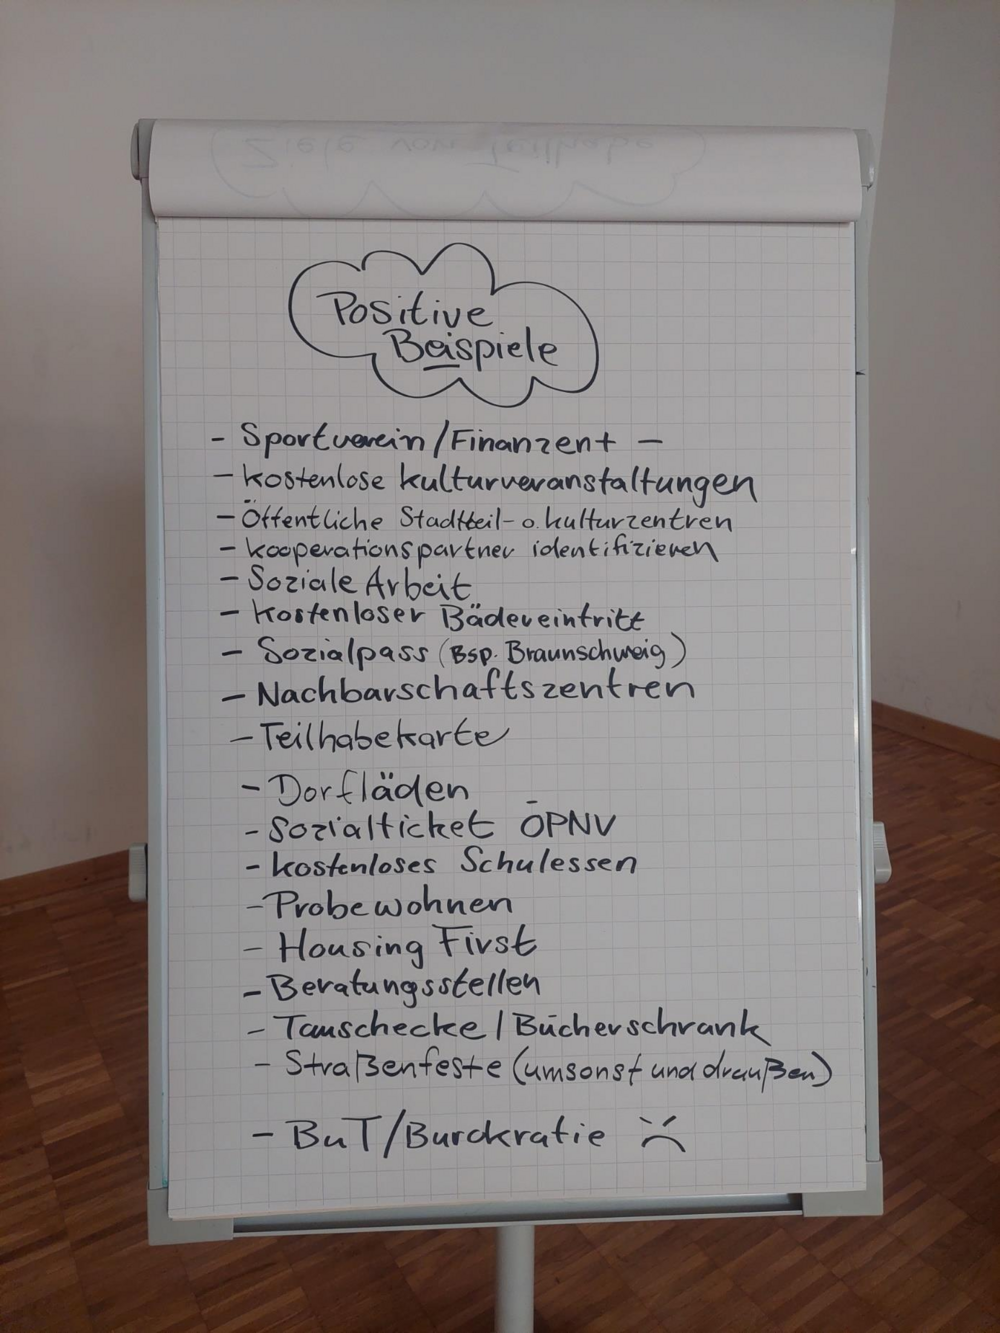 Ziele von Teilhabe
Positive
Beispiele
- Sportverein/Finanzent -
- kostenlose kulturveranstaltungen
- Öffentliche Stadtteil- o. kulturzentren
- kooperationspartner identifizieren
- Soziale Arbeit
- kostenloser Bädereintritt
- Sozialpass (Bsp. Braunschweig)
- Nachbarschaftszentren
- Teilhabekarte
- Dorfläden
- Sozialticket ÖPNV
- kostenloses Schulessen
- Probewohnen
- Housing First
- Beratungsstellen
- Tauschecke / Bücherschrank
- Straßenfeste (umsonst und draußen)
- BuT/Burokratie